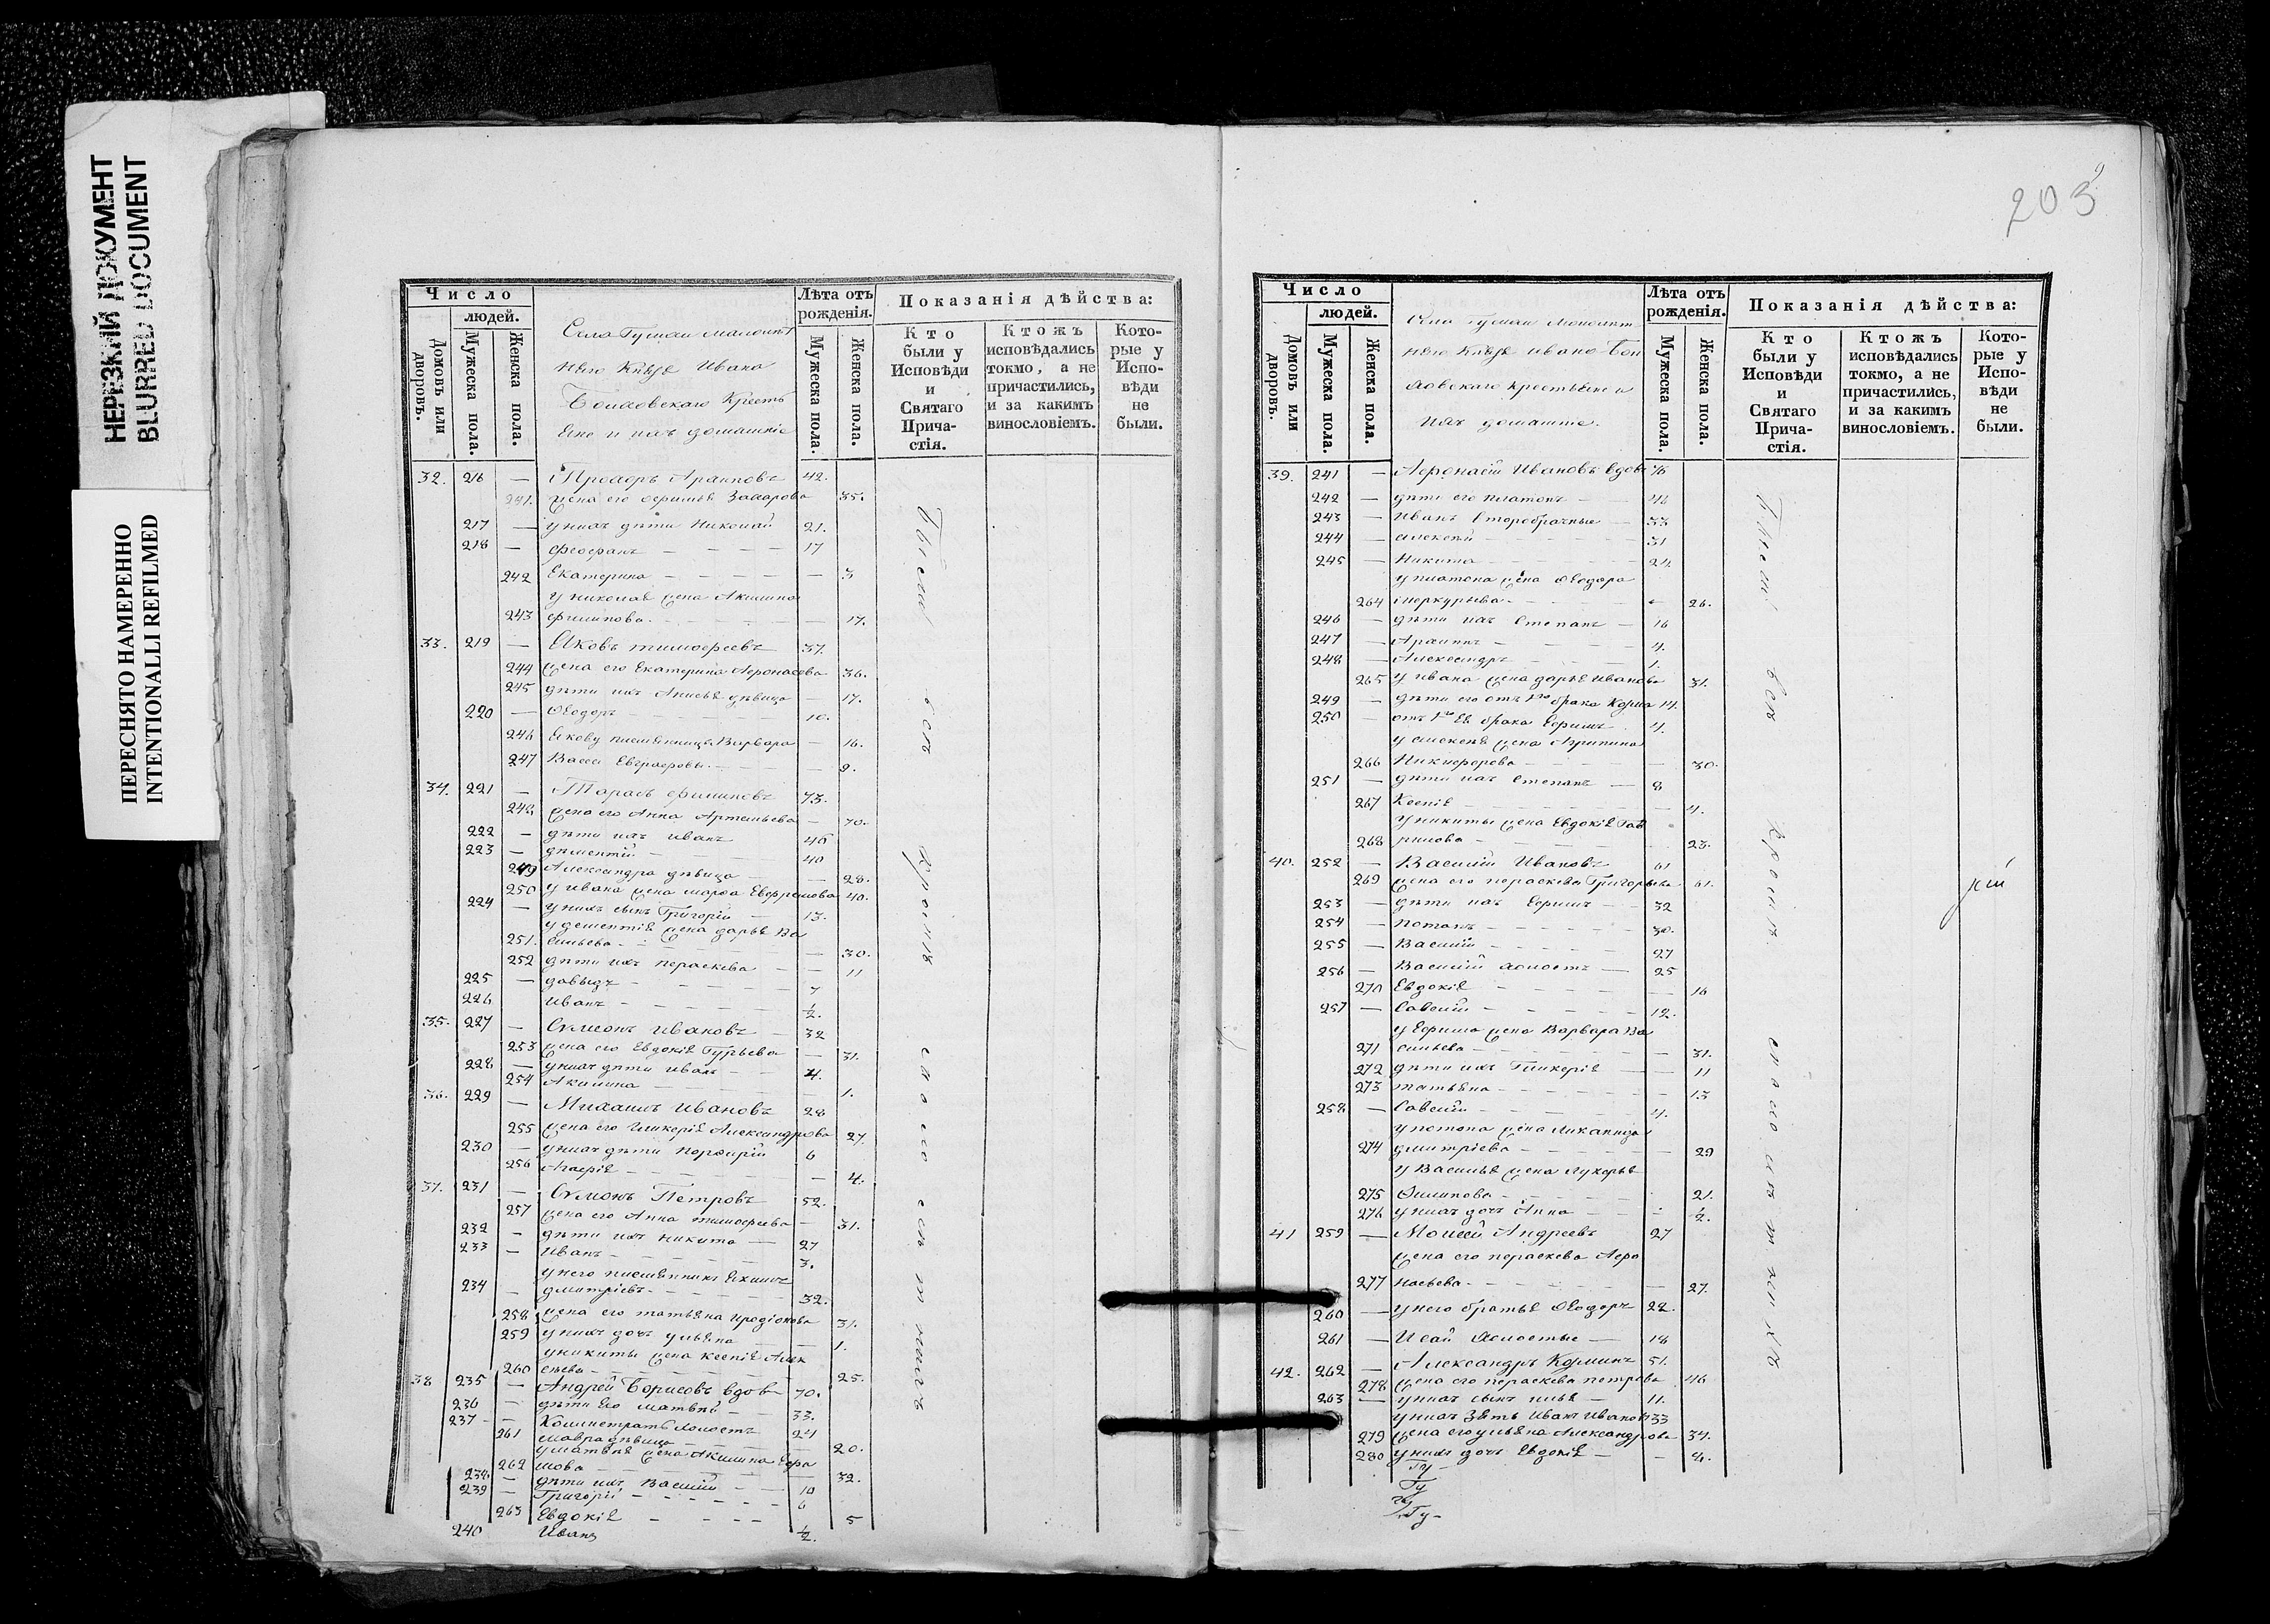 НЕРЕЗКИЙ ДОКУМЕНТ
BLURRED DOCUMENT
ПЕРЕСНЯТО НАМЕРЕННО
INTENTIONALLI REFILMED
Число
людей.
Домовъ или дворовъ.
Мужеска пола.
Женска пола.
Лѣта отъ рожденія.
Мужеска пола.
Женска пола.
Показанія дѣйства:
Кто были у Исповѣди и Святаго Прича-стія.
Ктожъ исповѣдались токмо, а не причастились, и за какимъ винословіемъ.
Кото-рые у Испо-вѣди не были.
Села
Ивана
и ихъ домашніе
32. 216 — 42.
241. жена его 35.
217 — у нихъ дѣти Николай 21.
218 — Феофанъ 17
242 Екатерина — 3
у николая жена Акилина
243 филипова — 17.
33. 219 — Яковъ тимофеевъ 37.
244 жена его Екатерина Афонасева 36.
245 дѣти ихъ Анисья дѣвица — 17.
220 — Ѳеодоръ 10.
246 Якову племянница Варвара — 16.
247 — 9.
34. 221 — Тарасъ филиповъ 73.
248 жена его Анна Артемьева — 70.
222 — дѣти ихъ иванъ 46
223 — дементій 40
249 Александра дѣвица — 28.
250 у ивана жена марфа 40.
224 — у нихъ сынъ Григорій 13.
у дементія жена дарья Ва
251. сильева — 30.
252 дѣти ихъ параскева — 11
225 — давыдъ 7
226 иванъ ½.
35. 227 — Симеонъ ивановъ 32
253 жена его Евдокія Гурьева — 31.
228 — у нихъ дѣти иванъ 4.
254 Акилина — 1.
36. 229 — Михаилъ ивановъ 28
255 жена его гликерія Александрова 27.
230 — у нихъ дѣти порфирій 6
256 — 4.
37. 231 — Симонъ Петровъ 52.
257 жена его Анна тимофеева — 31.
232 — дѣти ихъ никита 27
233 — иванъ 3.
у него племянникъ
234 — дмитріевъ 32.
258 жена его татьяна иродіонова 31.
259 у нихъ дочь ульяна — 1.
у никиты жена ксенія Алек
260 сеева 25.
38 235 — Андрей Борисовъ вдовъ 70.
236 — дѣти его матвѣй 33.
237 — Каллистратъ холостъ 24
261 мавра дѣвица 20.
у матвѣя жена Акилина Ефи
262 мова — 32.
238 — дѣти ихъ Василій 10
239 — Григорій 6
263 Евдокія 5
240 Иванъ ½.
Были
всѣ
кромѣ
сихъ
203
Число
людей.
Домовъ или дворовъ.
Мужеска пола.
Женска пола.
Лѣта отъ рожденія.
Мужеска пола.
Женска пола.
Показанія дѣйства:
Кто были у Исповѣди и Святаго Прича-стія.
Ктожъ исповѣдались токмо, а не причастились, и за какимъ винословіемъ.
Кото-рые у Испо-вѣди не были.
Села
ихъ домашніе.
39. 241 — Афонасій Ивановъ вдовъ 76
242 — дѣти его платонъ 46
243 — иванъ второбрачные 33
244 — алексѣй 31
245 — Никита 24
у платона жена Ѳеодора
264 меркурьева 26.
246 — дѣти ихъ Степанъ 16
247 — 4.
248 — Александръ 1.
265 у ивана жена дарья иванова 31.
249 — дѣти его отъ 1го брака Козма 14.
250 — отъ брака Ефимъ 4.
у алексѣя жена Агрипина
266 Никифорова — 30.
251 — дѣти ихъ Степанъ 8
267 Ксенія 4.
у никиты жена Евдокія Гав
268 рилова 23.
40. 252 — Василій Ивановъ 61
269 жена его параскева Григорьева 61.
253 — дѣти ихъ Ефимъ 32
254 — потапъ 30.
255 — Василій 27
256 — Василій холостъ 25
270 Евдокія — 16
257 — Савелій 12.
у Ефима жена Варвара Ва
271 сильева — 31.
272 дѣти ихъ Гликерія — 11
273 татьяна — 13
258 — Савелій 4.
у потапа жена
274 дмитріева — 29
у Василья жена лукерья
275 Филипова 21.
276 у нихъ дочь Анна ½.
41 259 — Моисей Андреевъ 27
жена его параскева Афо
277 насьева — 27.
260 — у него братья Ѳеодоръ 22.
261 — Исай холостые 18
42. 262 — Александръ Козминъ 51.
278 жена его параскева петрова 46
263 — у нихъ сынъ илья 11.
у нихъ зять иванъ ивановъ 33
279 жена его ульяна Александрова 34.
280 у нихъ дочь Евдокія — 4.
Гу
Гу
Гу
Были
всѣ
кромѣ